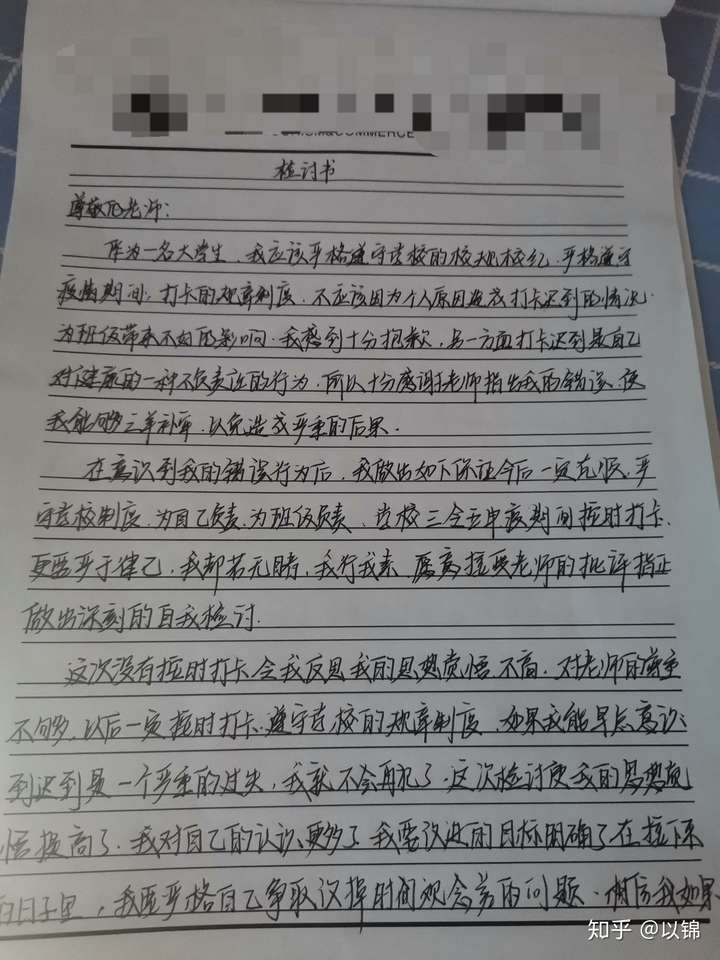 COMMERCE
检讨书
尊敬的老师：
作为一名大学生，我应该严格遵守学校的校规校纪，严格遵守
疫情期间，打卡的规章制度，不应该因为个人原因造成打卡迟到的情况
为班级带来不好的影响。我感到十分抱歉，另一方面打卡迟到是自己
对健康的一种不负责任的行为，所以十分感谢老师指出我的错误，使
我能够亡羊补牢，以免造成严重的后果。
在意识到我的错误行为后，我做出如下保证今后一定克服，严
守学校制度，为自己负责，为班级负责，学校三令五申疫期间按时打卡，
更要严于律己，我却若无睹，我行我素 愿意接受老师的批评指正
做出深刻的自我检讨.
这次没有按时打卡令我反思我的思想觉悟不高，对老师的尊重
不够，以后一定按时打卡，遵守学校的规章制度，如果我能早点意识
到迟到是一个严重的过失，我就不会再犯了，这次检讨使我的思想觉
悟提高了，我对自己的认识更多了 我要改进的目标明确了在接下来
的日子里，我要严格自己争取改掉时间观念差的问题。相信我如果
知乎 @以锦